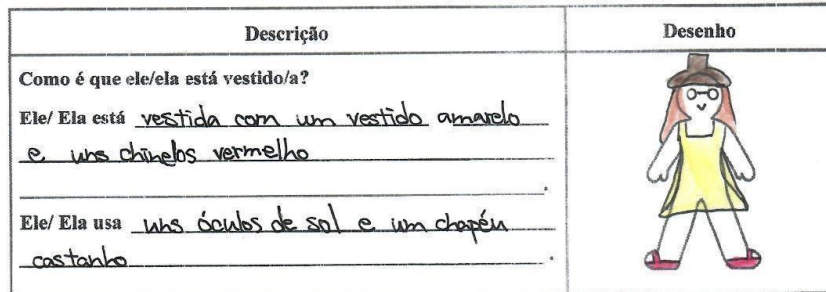 Descrição
Desenho
Como é que ele/ela está vestido/a?
Ele/ Ela está vestida com um vestido amarelo
e uns chinelos vermelho
.
Ele/ Ela usa uns óculos de sol e um chapéu
castanho.